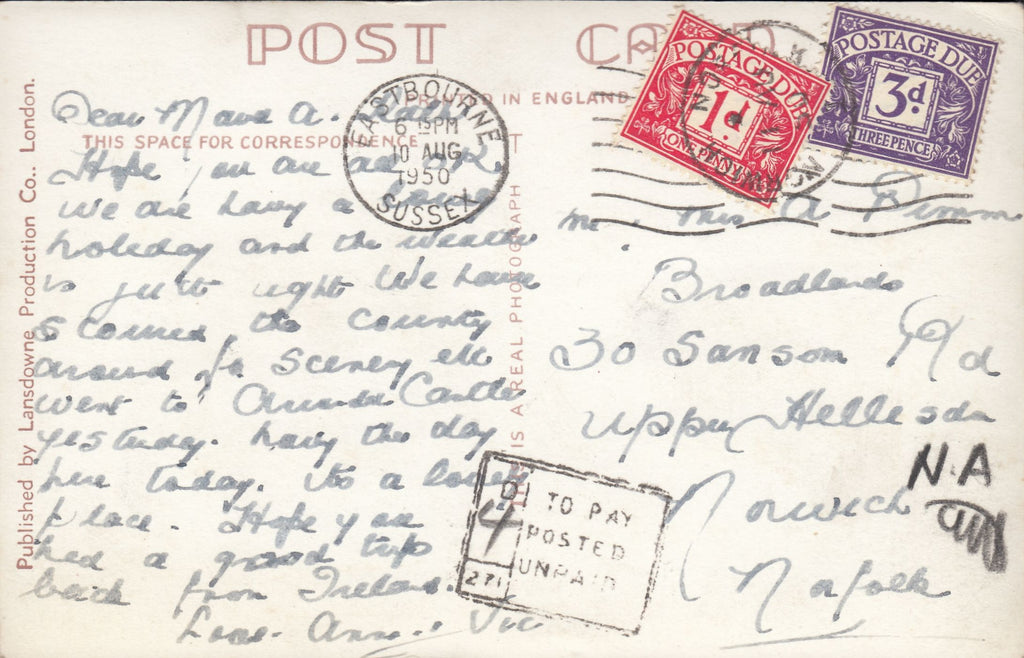 POST CARD
PRINTED IN ENGLAND
THIS SPACE FOR CORRESPONDENCE
Published by Lansdowne Production Co., London.
IS A REAL PHOTOGRAPH
EASTBOURNE
6 15 PM
10 AUG
1950
SUSSEX
POSTAGE DUE
1d
ONE PENNY
POSTAGE DUE
3d.
THREE PENCE
NORWICH
Dear Maud A.
Hope you are all O.K.
We are havg a
holiday and the weather
is just right We have
scoured the county
around for scenery etc
went to Castle
yesterday. havg the day
here today. its a lovely
place. Hope you
had a good trip
back from Ireland.
Love. Ann.. Vic
Mr. Mrs A Pimm
Broadlands
30 Sanson Rd
Upper Hellesdn
Norwich
Norfolk
N.A
D
4
271
TO PAY
POSTED
UNPAID